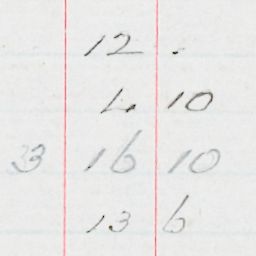 12 .
4 10
3 16 10
13 6